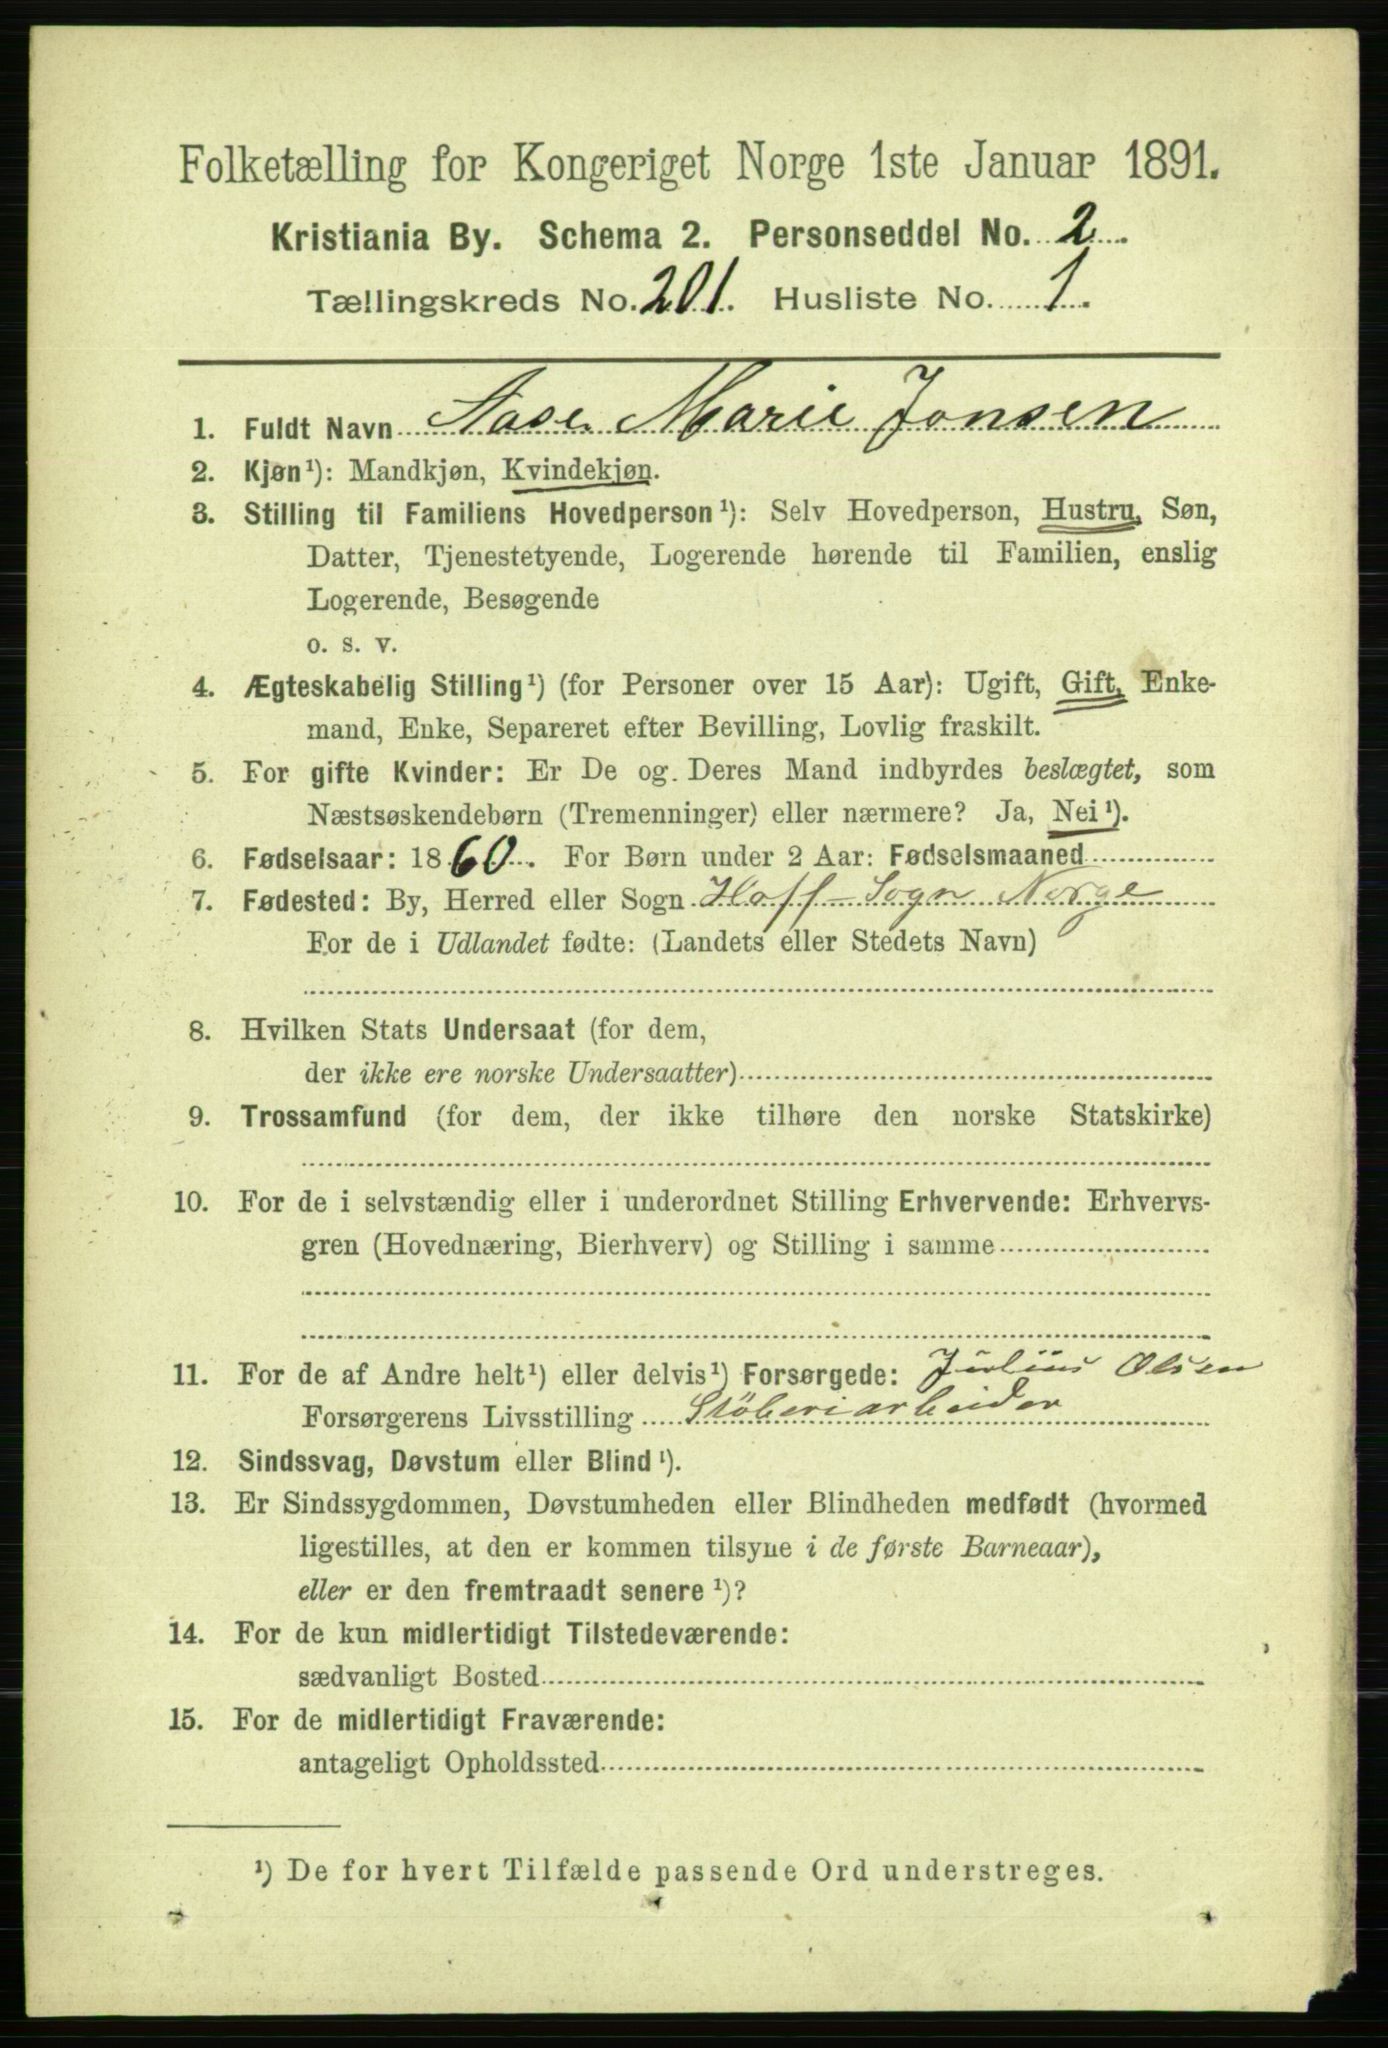 Folketælling for Kongeriget Norge 1ste Januar 1891.
Kristiania By. Schema 2. Personseddel No. 2
Tællingskreds No. 201. Husliste No. 1.
1. Fuldt Navn Aase Marie Jonsen
2. Kjøn¹): Mandkjøn, Kvindekjøn.
3. Stilling til Familiens Hovedperson¹): Selv Hovedperson, Hustru, Søn,
Datter, Tjenestetyende, Logerende hørende til Familien, enslig
Logerende, Besøgende
o. s. v.
4. Ægteskabelig Stilling¹) (for Personer over 15 Aar): Ugift, Gift, Enke-
mand, Enke, Separeret efter Bevilling, Lovlig fraskilt.
5. For gifte Kvinder: Er De og Deres Mand indbyrdes beslægtet, som
Næstsøskendebørn (Tremenninger) eller nærmere? Ja, Nei¹).
6. Fødselsaar: 1860. For Børn under 2 Aar: Fødselsmaaned
7. Fødested: By, Herred eller Sogn Hoff-Sogn Norge
For de i Udlandet fødte: (Landets eller Stedets Navn)
8. Hvilken Stats Undersaat (for dem,
der ikke ere norske Undersaatter)
9. Trossamfund (for dem, der ikke tilhøre den norske Statskirke)
10. For de i selvstændig eller i underordnet Stilling Erhvervende: Erhvervs-
gren (Hovednæring, Bierhverv) og Stilling i samme
11. For de af Andre helt¹) eller delvis¹) Forsørgede: Julius Olsen
Forsørgerens Livsstilling Stöberiarbeider
12. Sindssvag, Døvstum eller Blind¹).
13. Er Sindssygdommen, Døvstumheden eller Blindheden medfødt (hvormed
ligestilles, at den er kommen tilsyne i de første Barneaar),
eller er den fremtraadt senere¹)?
14. For de kun midlertidigt Tilstedeværende:
sædvanligt Bosted
15. For de midlertidigt Fraværende:
antageligt Opholdssted
¹) De for hvert Tilfælde passende Ord understreges.